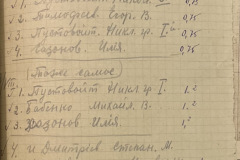 2. Тимофеев. Егор. В. 0,75
3. Пустовойт. Никл. гр. I. 0,75
4. Сазонов. Илия. 0,75
Тоже самое
1. Пустовойт Никл гр I. 1,2
2. Бабенко Михаил. В. 1,2
3. Сазонов Илия. 1,2
и Дмитриев Степан. М.